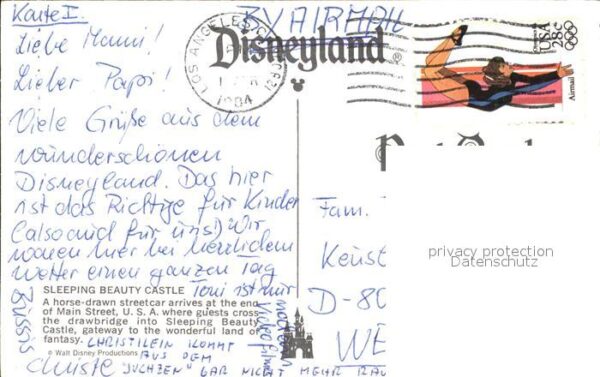 Karte II.
BY AIRMAIL
Liebe Mami!
Lieber Papi!
Viele Grüße aus dem
wunderschönen
Disneyland. Das hier
ist das Richtige für Kinder
(also auch für uns!) Wir
waren hier bei herrlichem
Wetter einen ganzen Tag
Toni ist mir
Videofilmen
Bussis
CHRISTILEIN KOMMT
AUS DEM
Christe "JUCHZEN" GAR NICHT MEHR RAU
Disneyland®
LOS ANGELES, CA
1984
Olympics
USA
28c
Airmail
Fam.
D-80
WE
privacy protection
Datenschutz
SLEEPING BEAUTY CASTLE
A horse-drawn streetcar arrives at the end
of Main Street, U. S. A. where guests cross
the drawbridge into Sleeping Beauty
Castle, gateway to the wonderful land of
fantasy.
© Walt Disney Productions